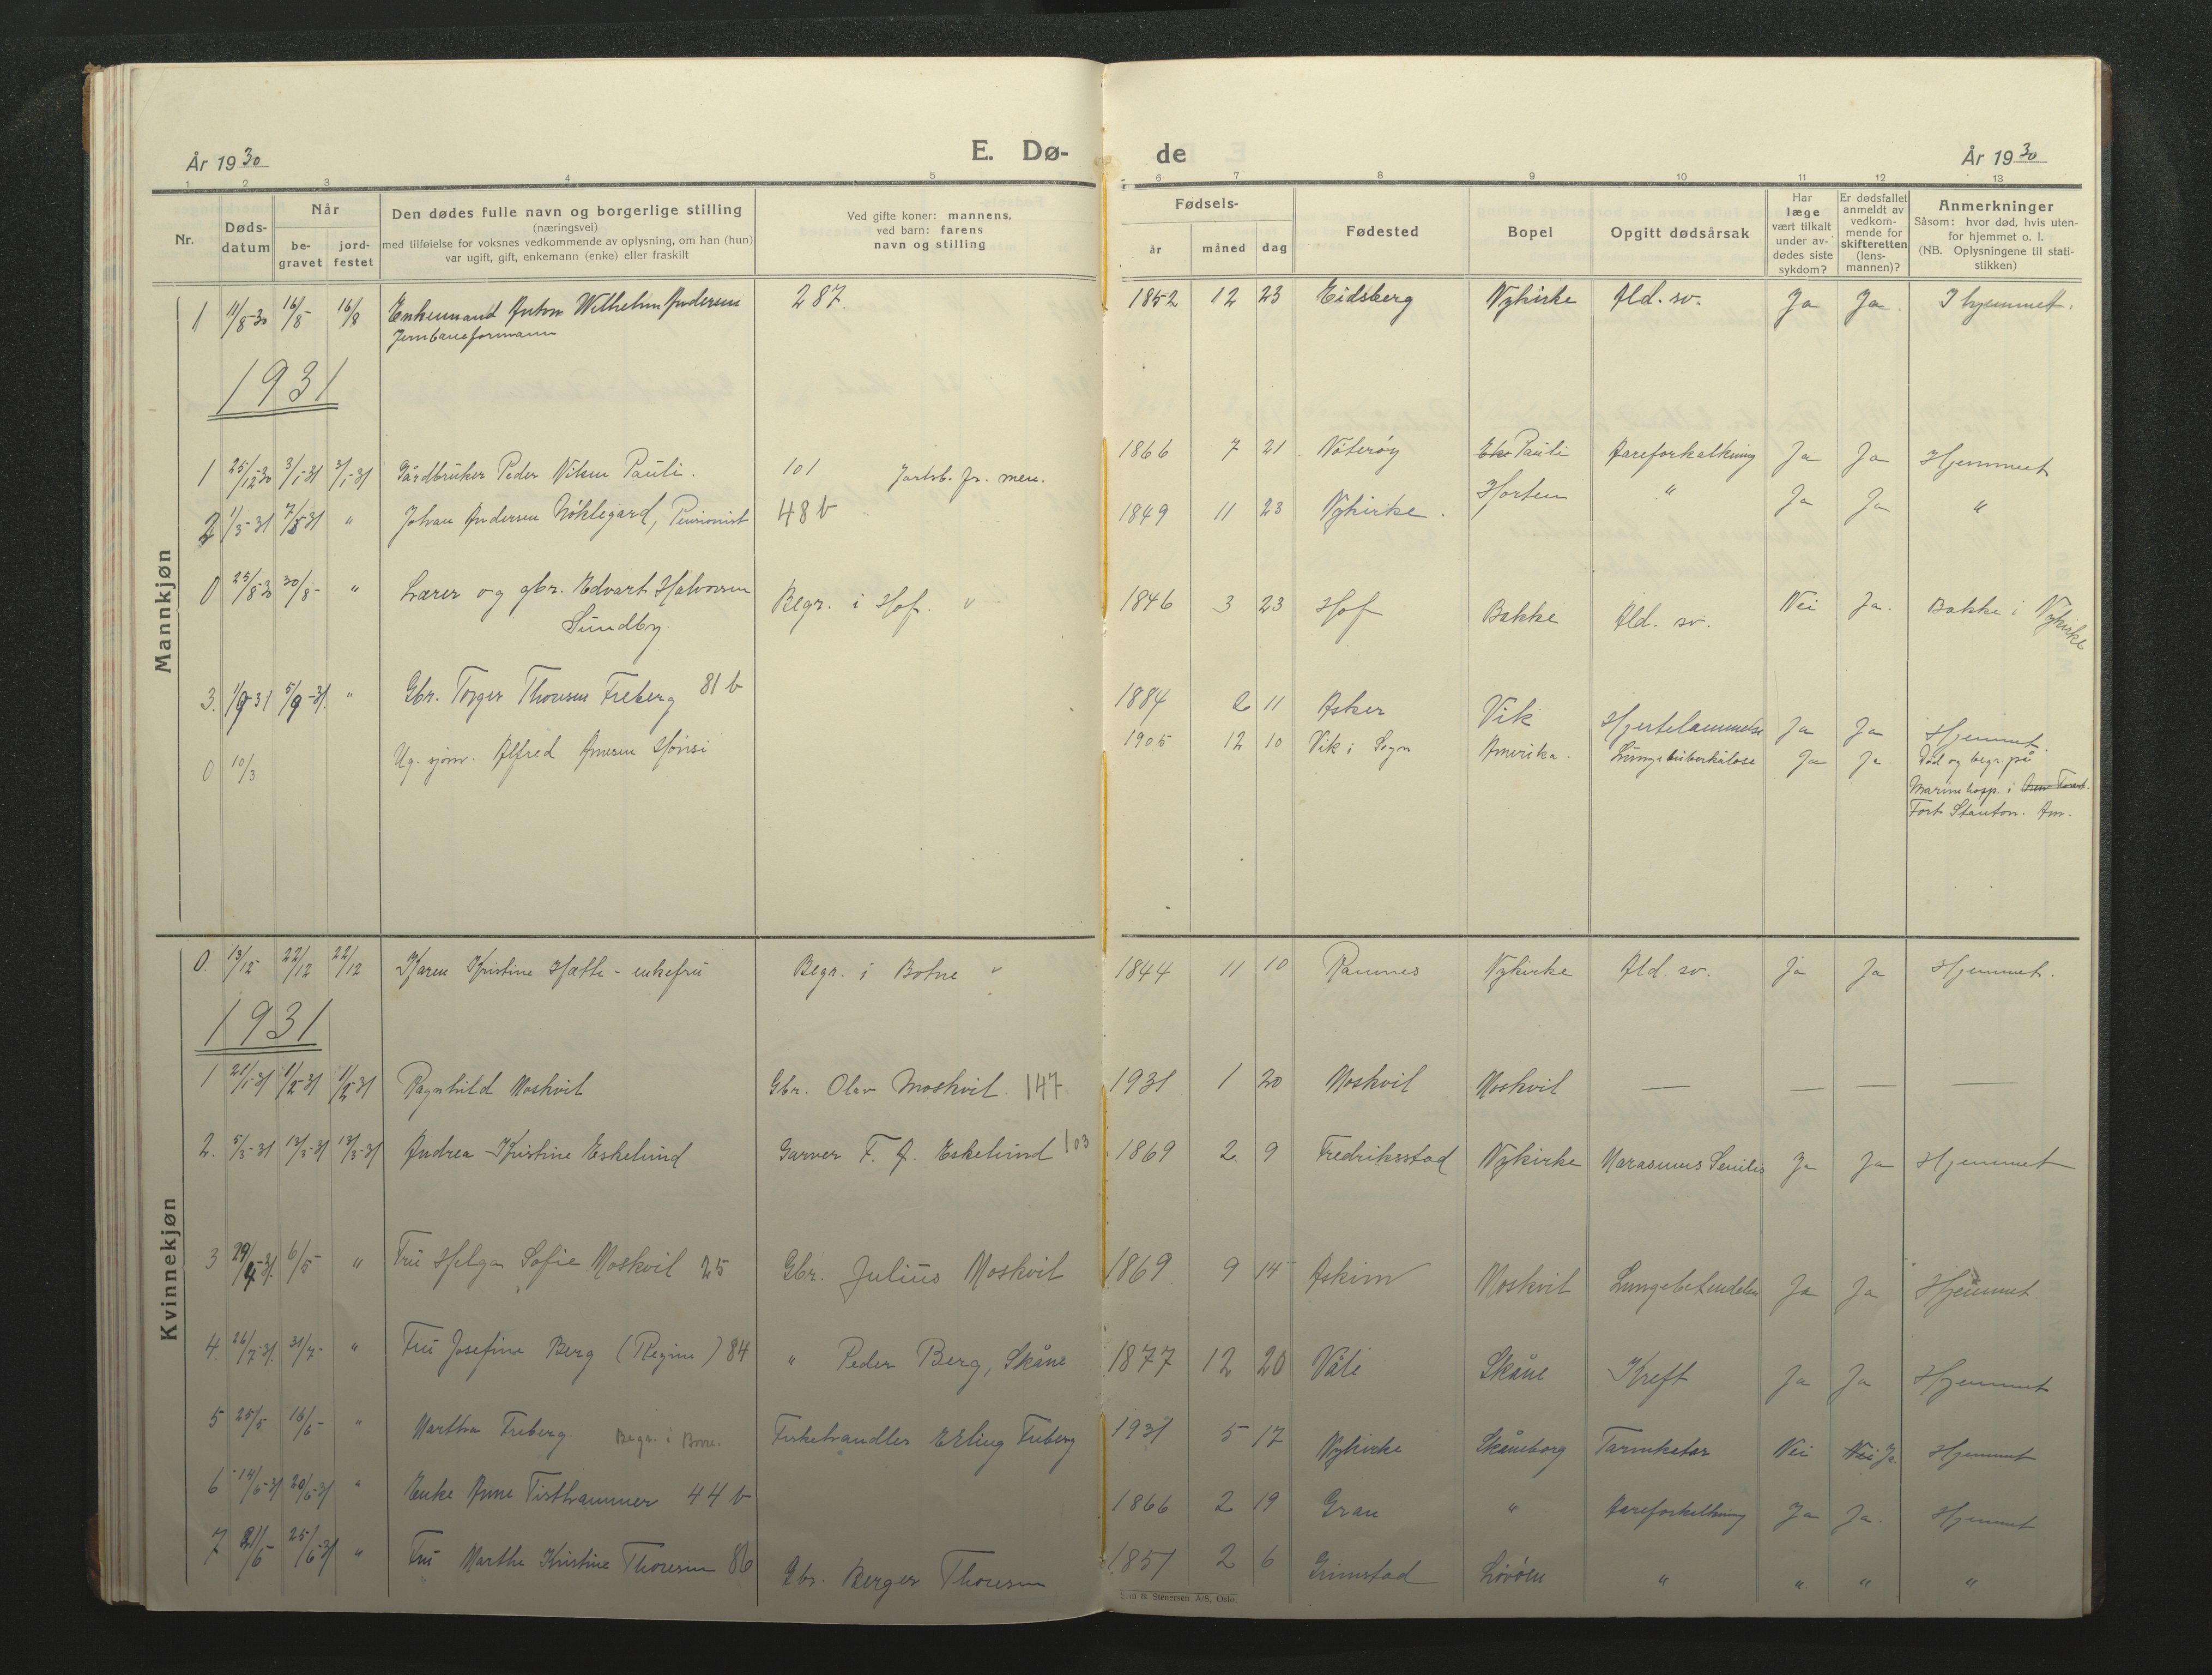 År 1930
E. Dø-
de
År 1930
1 2 3 4 5 6 7 8 9 10 11 12 13
Nr.
Døds-
datum
Når
be-
gravet
jord-
festet
Den dødes fulle navn og borgerlige stilling
(næringsvei)
med tilføielse for voksnes vedkommende av oplysning, om han (hun)
var ugift, gift, enkemann (enke) eller fraskilt
Ved gifte koner: mannens,
ved barn: farens
navn og stilling
Fødsels-
år måned dag
Fødested
Bopel
Opgitt dødsårsak
Har
læge
vært tilkalt
under av-
dødes siste
sykdom?
Er dødsfallet
anmeldt av
vedkom-
mende for
skifteretten
(lens-
mannen)?
Anmerkninger
Såsom: hvor død, hvis uten-
for hjemmet o. l.
(NB. Oplysningene til stati-
stikken)
Mannkjøn
1 11/8-30 16/8 16/8 Enkemand Anton Wilhelm Andersen 287. 1852 12 23 Eidsberg Nykirke Ald. sv. Ja Ja. I hjemmet.
Jernbaneformann
1931
1 25/12-30 3/1-31 3/1-31 Gårdbruker Peder Nilsen Pauli. 101 Jarlsb. fr. men. 1866 7 21 Nøterøy Eke Pauli Aareforkalkning Ja Ja Hjemmet
2 1/3-31 7/3-31 " Johan Andersen Nøklegard, Pensionist 48 b 1849 11 23 Nykirke. Horten " Ja Ja "
0 25/8-30 30/8- " Lærer og gbr. Edvart Halvorsen Begr. i Hof. " 1846 3 23 Hof Bakke Ald. sv. Nei Ja. Bakke i Nykirke
Sundby.
3. 1/9-31 5/9-31. " Gbr. Torger Thoresen Freberg 81 b 1884 2 11 Asker Vik Hjertelammelse Ja Ja Hjemmet.
0 10/3 Ug. sjøm. Alfred Arnesen Hønsi 1905 12 10 Vik i Sogn Amerika. Lungetuberkulose Ja Ja Død og begr. på
Marinehosp. i
Fort Stanton. Am.
Kvinnekjøn
0. 13/12 22/12 22/12 Karen Kristine Hatte - enkefru Begr. i Botne " 1844 11 10 Ramnes Nykirke Ald. sv. Ja Ja Hjemmet.
1931
1 21/1-31 1/2-31 1/2-31 Ragnhild Moskvil Gbr. Olav Moskvil 147 1931 1 20 Moskvil Moskvil — — — —
2. 5/3-31 13/3-31 13/3-31 Andrea Kristine Eskelund Garver F. A. Eskelund 103 1869 2 9 Fredriksstad Nykirke Marasmus Senilis Ja Ja Hjemmet
3 29/4-31. 6/5- " Fru Helga Sofie Moskvil 25 Gbr. Julius Moskvil 1869 9 14 Askim Moskvil Lungebetendelse Ja Ja Hjemmet
4. 26/7-31. 31/7- " Fru Josefine Berg (Regine) 84 " Peder Berg, Skåne 1877 12 20 Våle Skåne Kreft Ja Ja Hjemmet
5 25/5 16/6- " Martha Freberg. Begr. i Borre. Fiskehandler Erling Freberg 1931 5 17 Nykirke Skåneborg Tarmkatar Nei Nei Ja. Hjemmet
6 14/6-31 20/6-31 " Enke Anne Tisthammer 44 b 1866 2 19 Gran " Aareforkalkning Ja Ja. Hjemmet
7 21/6 25/6-31 " Fru Marthe Kristine Thoresen 86 Gbr. Berger Thoresen 1851 2 6 Grimstad Løvøen " " " "
& Stenersen A/S, Oslo.